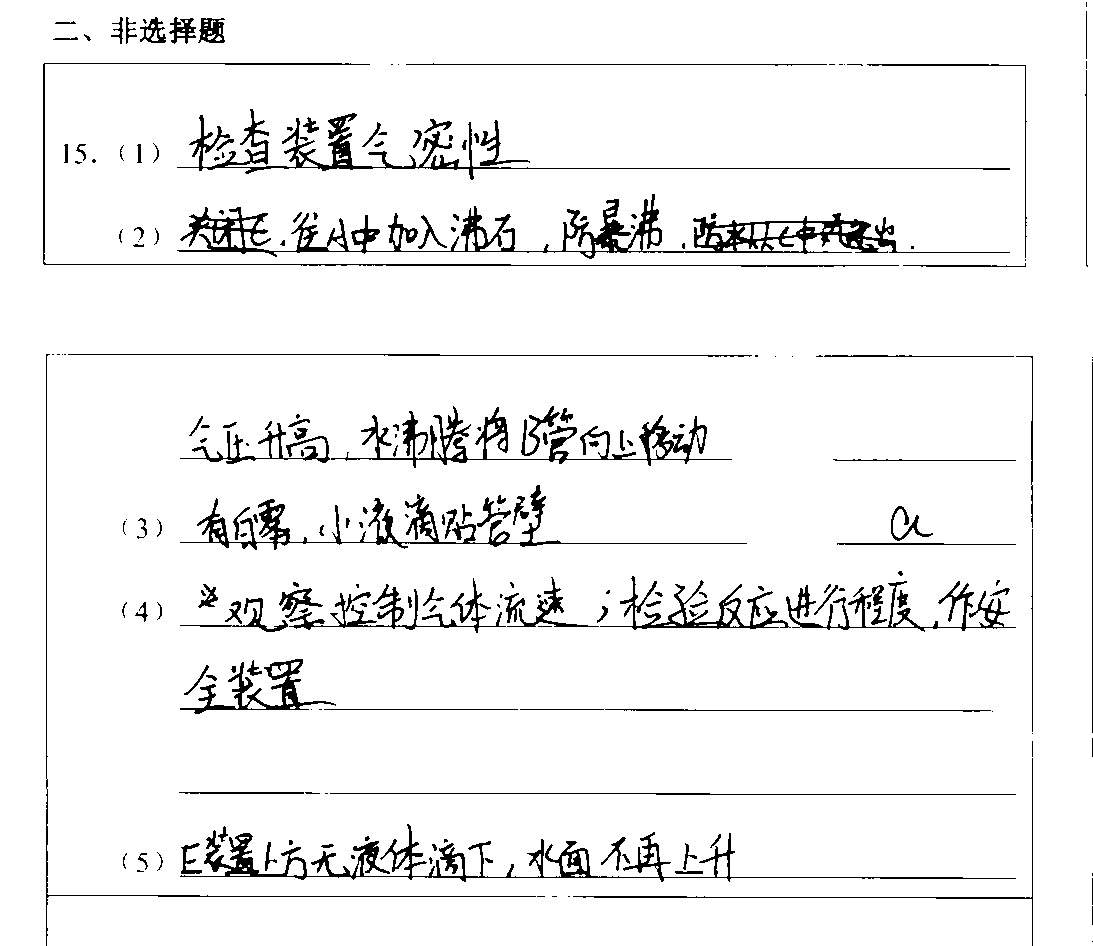 二、非选择题
15.（1）检查装置气密性
（2）关闭E，往A中加入沸石，防暴沸，
气压升高，水沸腾将B管向上移动
（3）有白雾，小液滴贴管壁 a
（4）观察控制气体流速；检验反应进行程度，作安
全装置
（5）E装置上方无液体滴下，水面不再上升